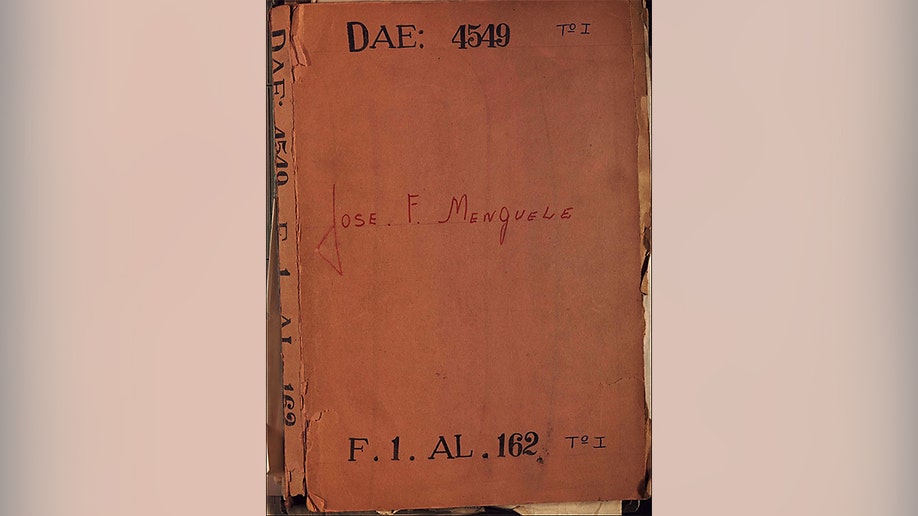 DAE: 4549 Tº I
JOSE. F. MENGUELE
F. 1. AL. 162. Tº I
DAE: 4549 F. 1. AL. 162